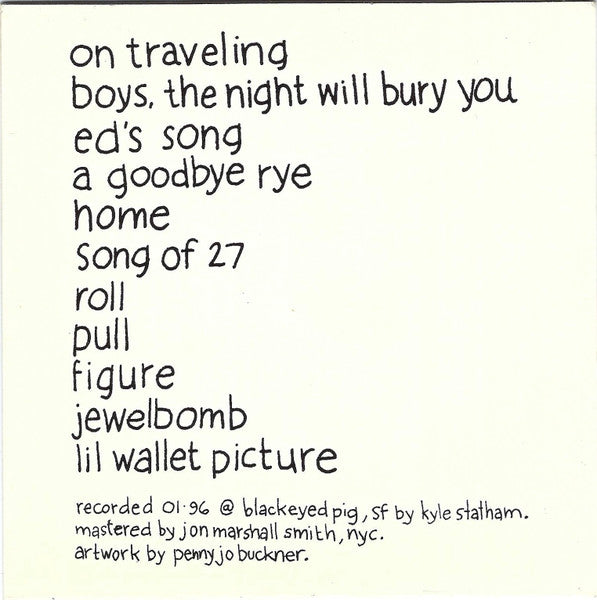 on traveling
boys, the night will bury you
ed's song
a goodbye rye
home
song of 27
roll
pull
figure
jewelbomb
lil wallet picture
recorded 01·96 @ blackeyed pig, sf by kyle statham.
mastered by jon marshall smith, nyc.
artwork by penny jo buckner.